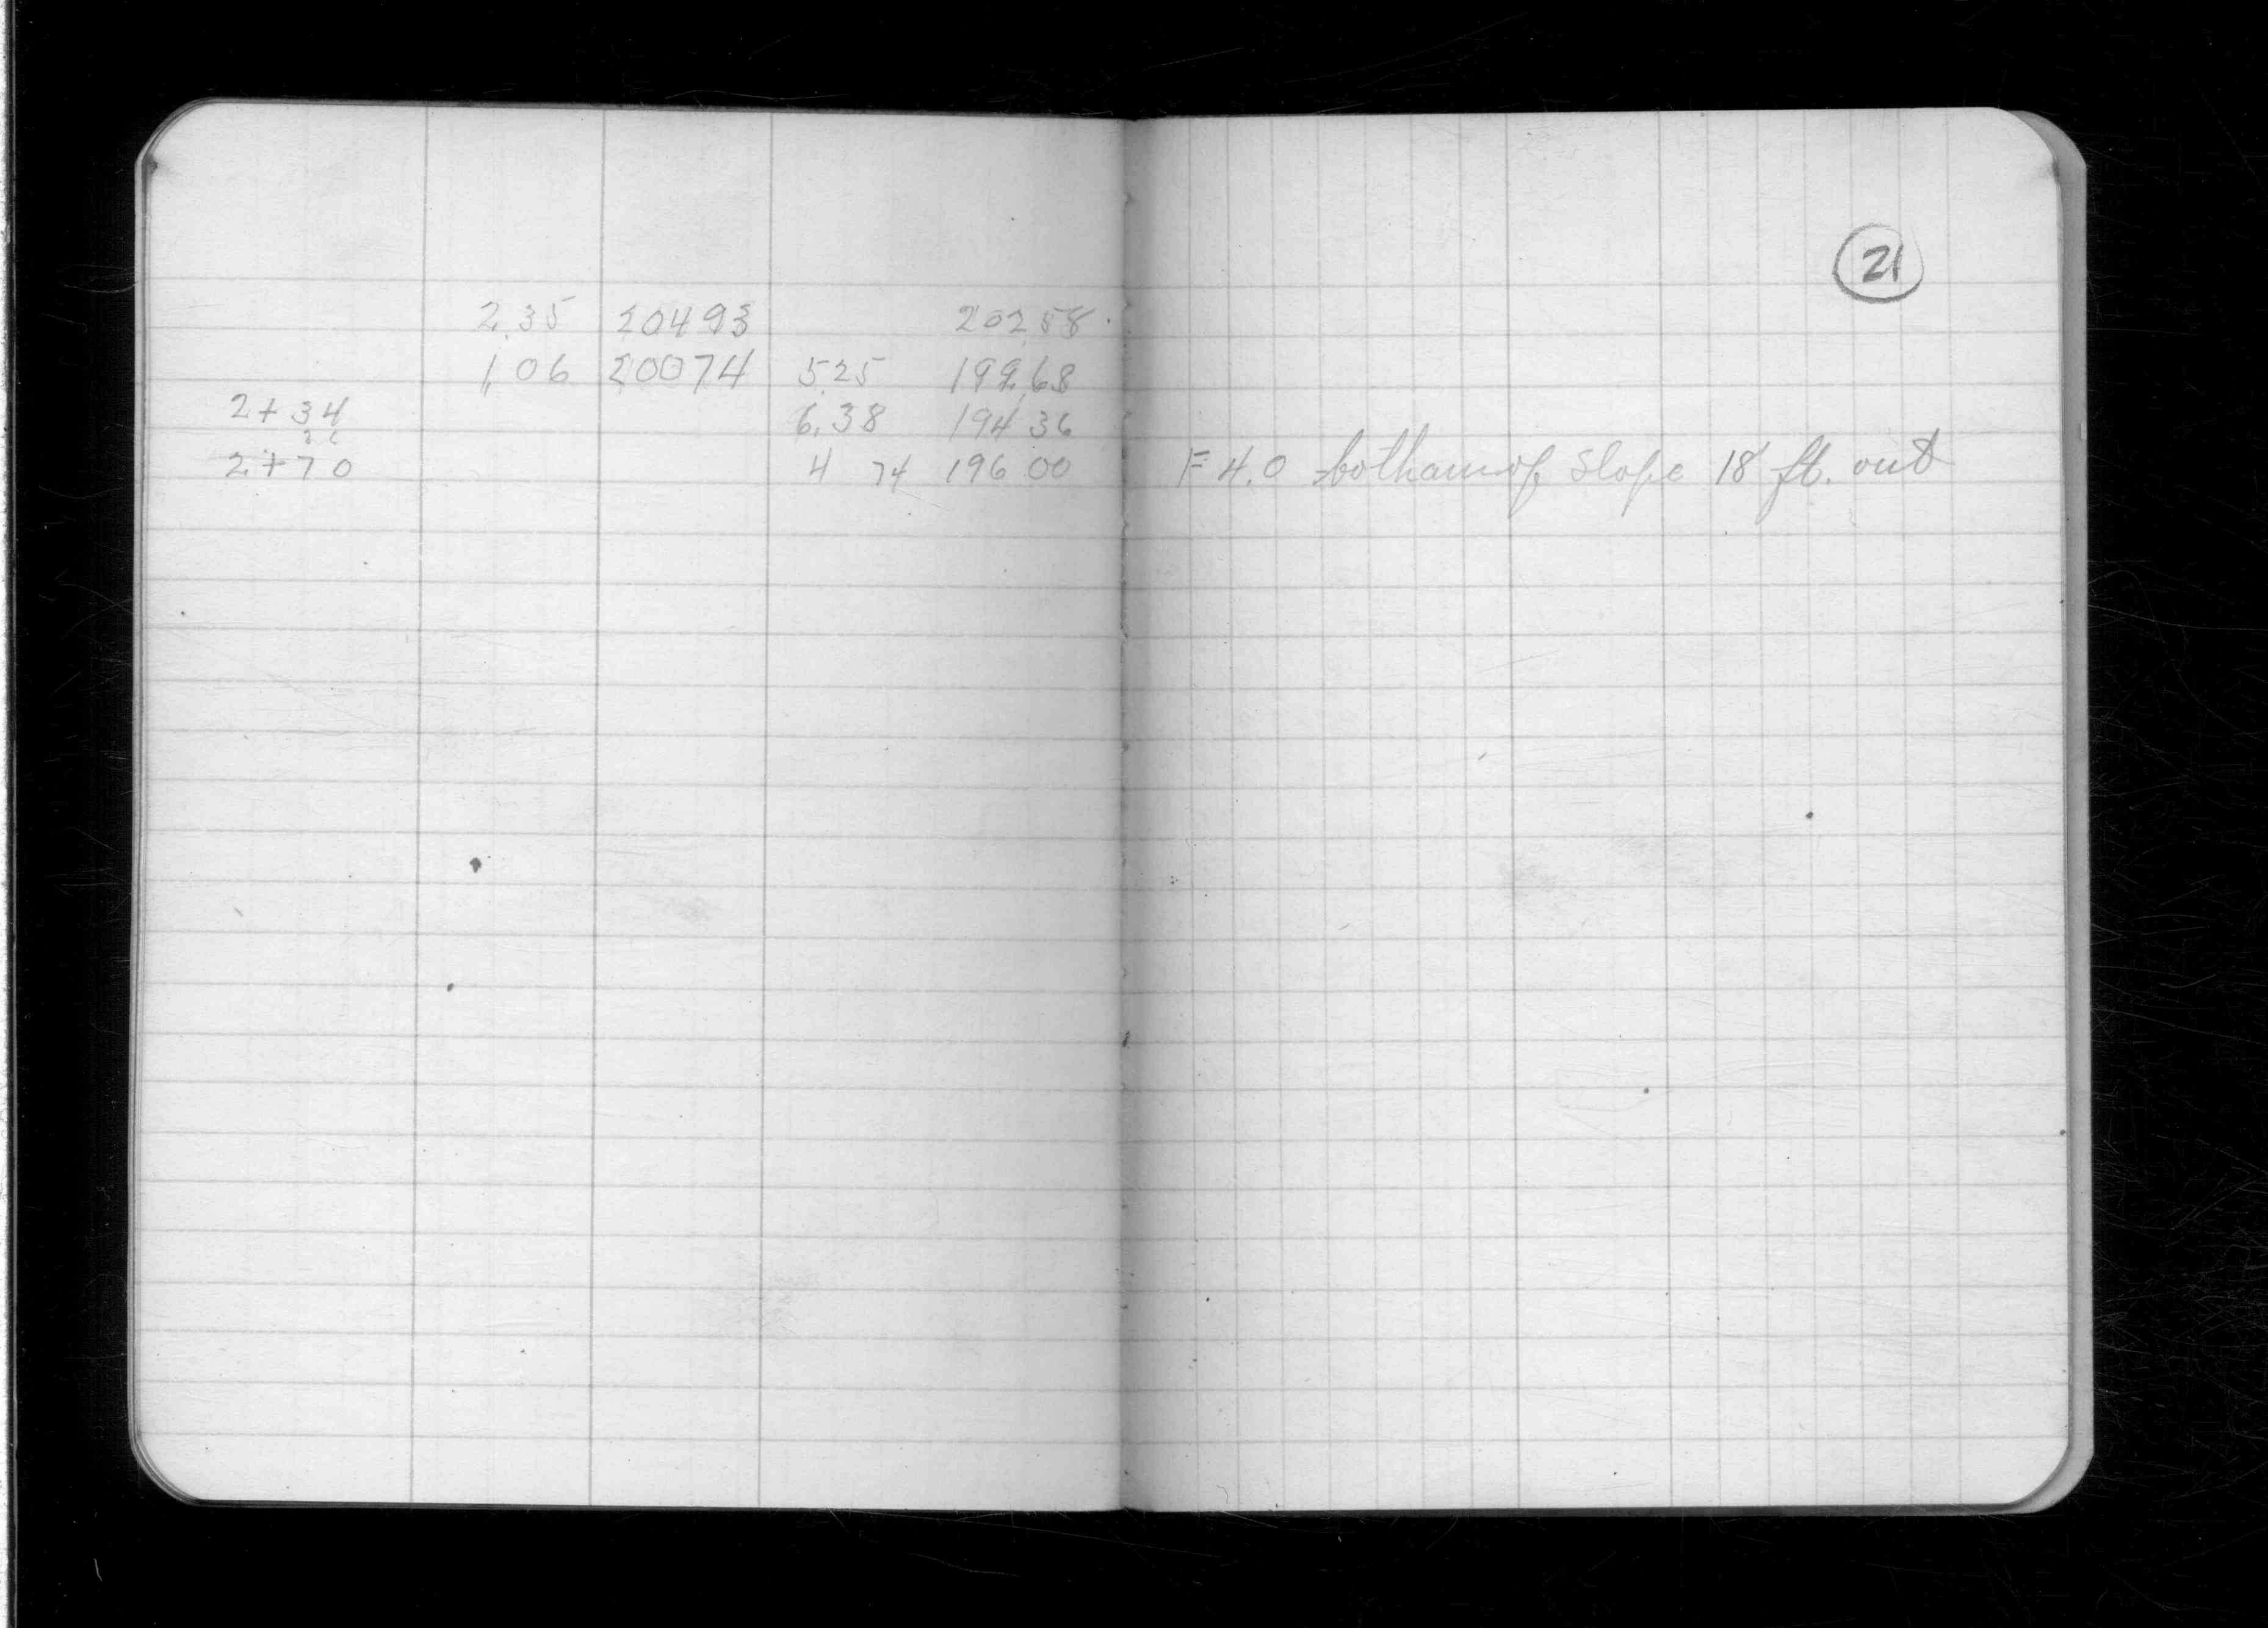 21
2.35 204 93 202.58
1.06 200 74 5.25 199.68
2+34 6.38 194 36
36
2+70 4 74 196 00 F 4.0 bothamof Slope 18 ft. out